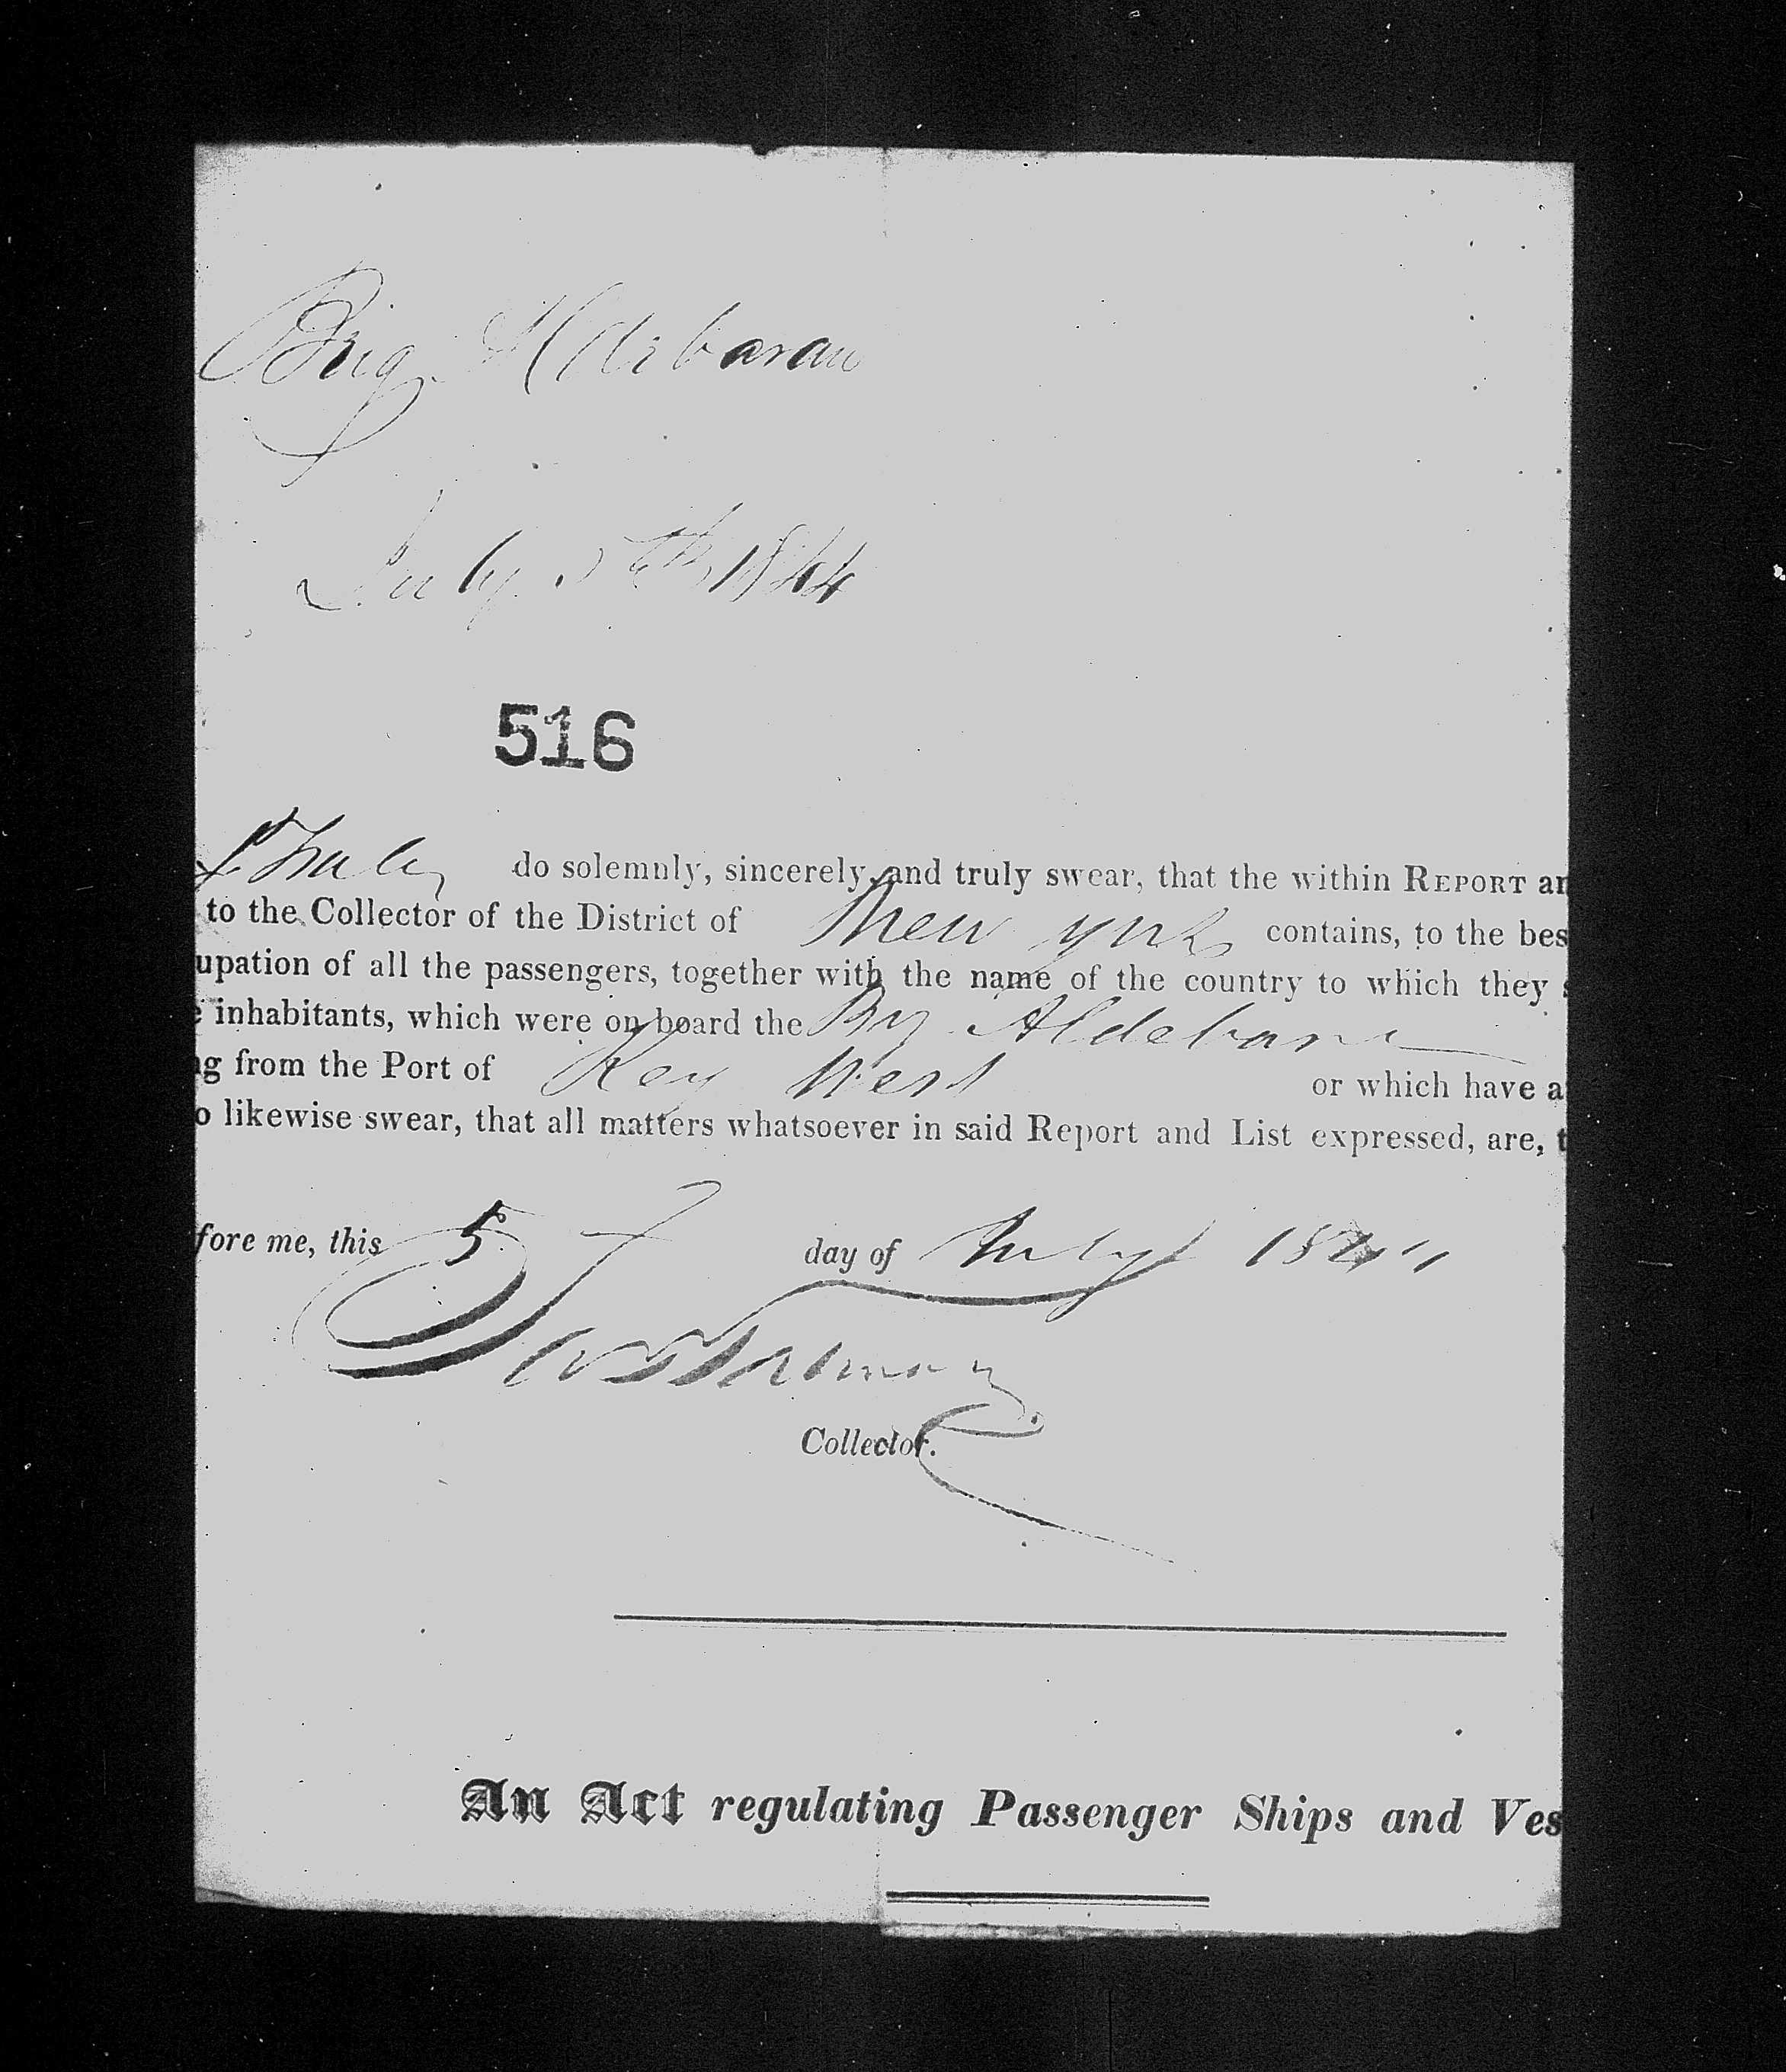 Brig Aldebaran
July 5th 1844
516
do solemnly, sincerely, and truly swear, that the within REPORT an
to the Collector of the District of New York contains, to the bes
upation of all the passengers, together with the name of the country to which they s
e inhabitants, which were on board the Brig Aldebaran
ng from the Port of Key West or which have a
o likewise swear, that all matters whatsoever in said Report and List expressed, are, t
fore me, this 5 day of July 1844
Collector.
An Act regulating Passenger Ships and Ves